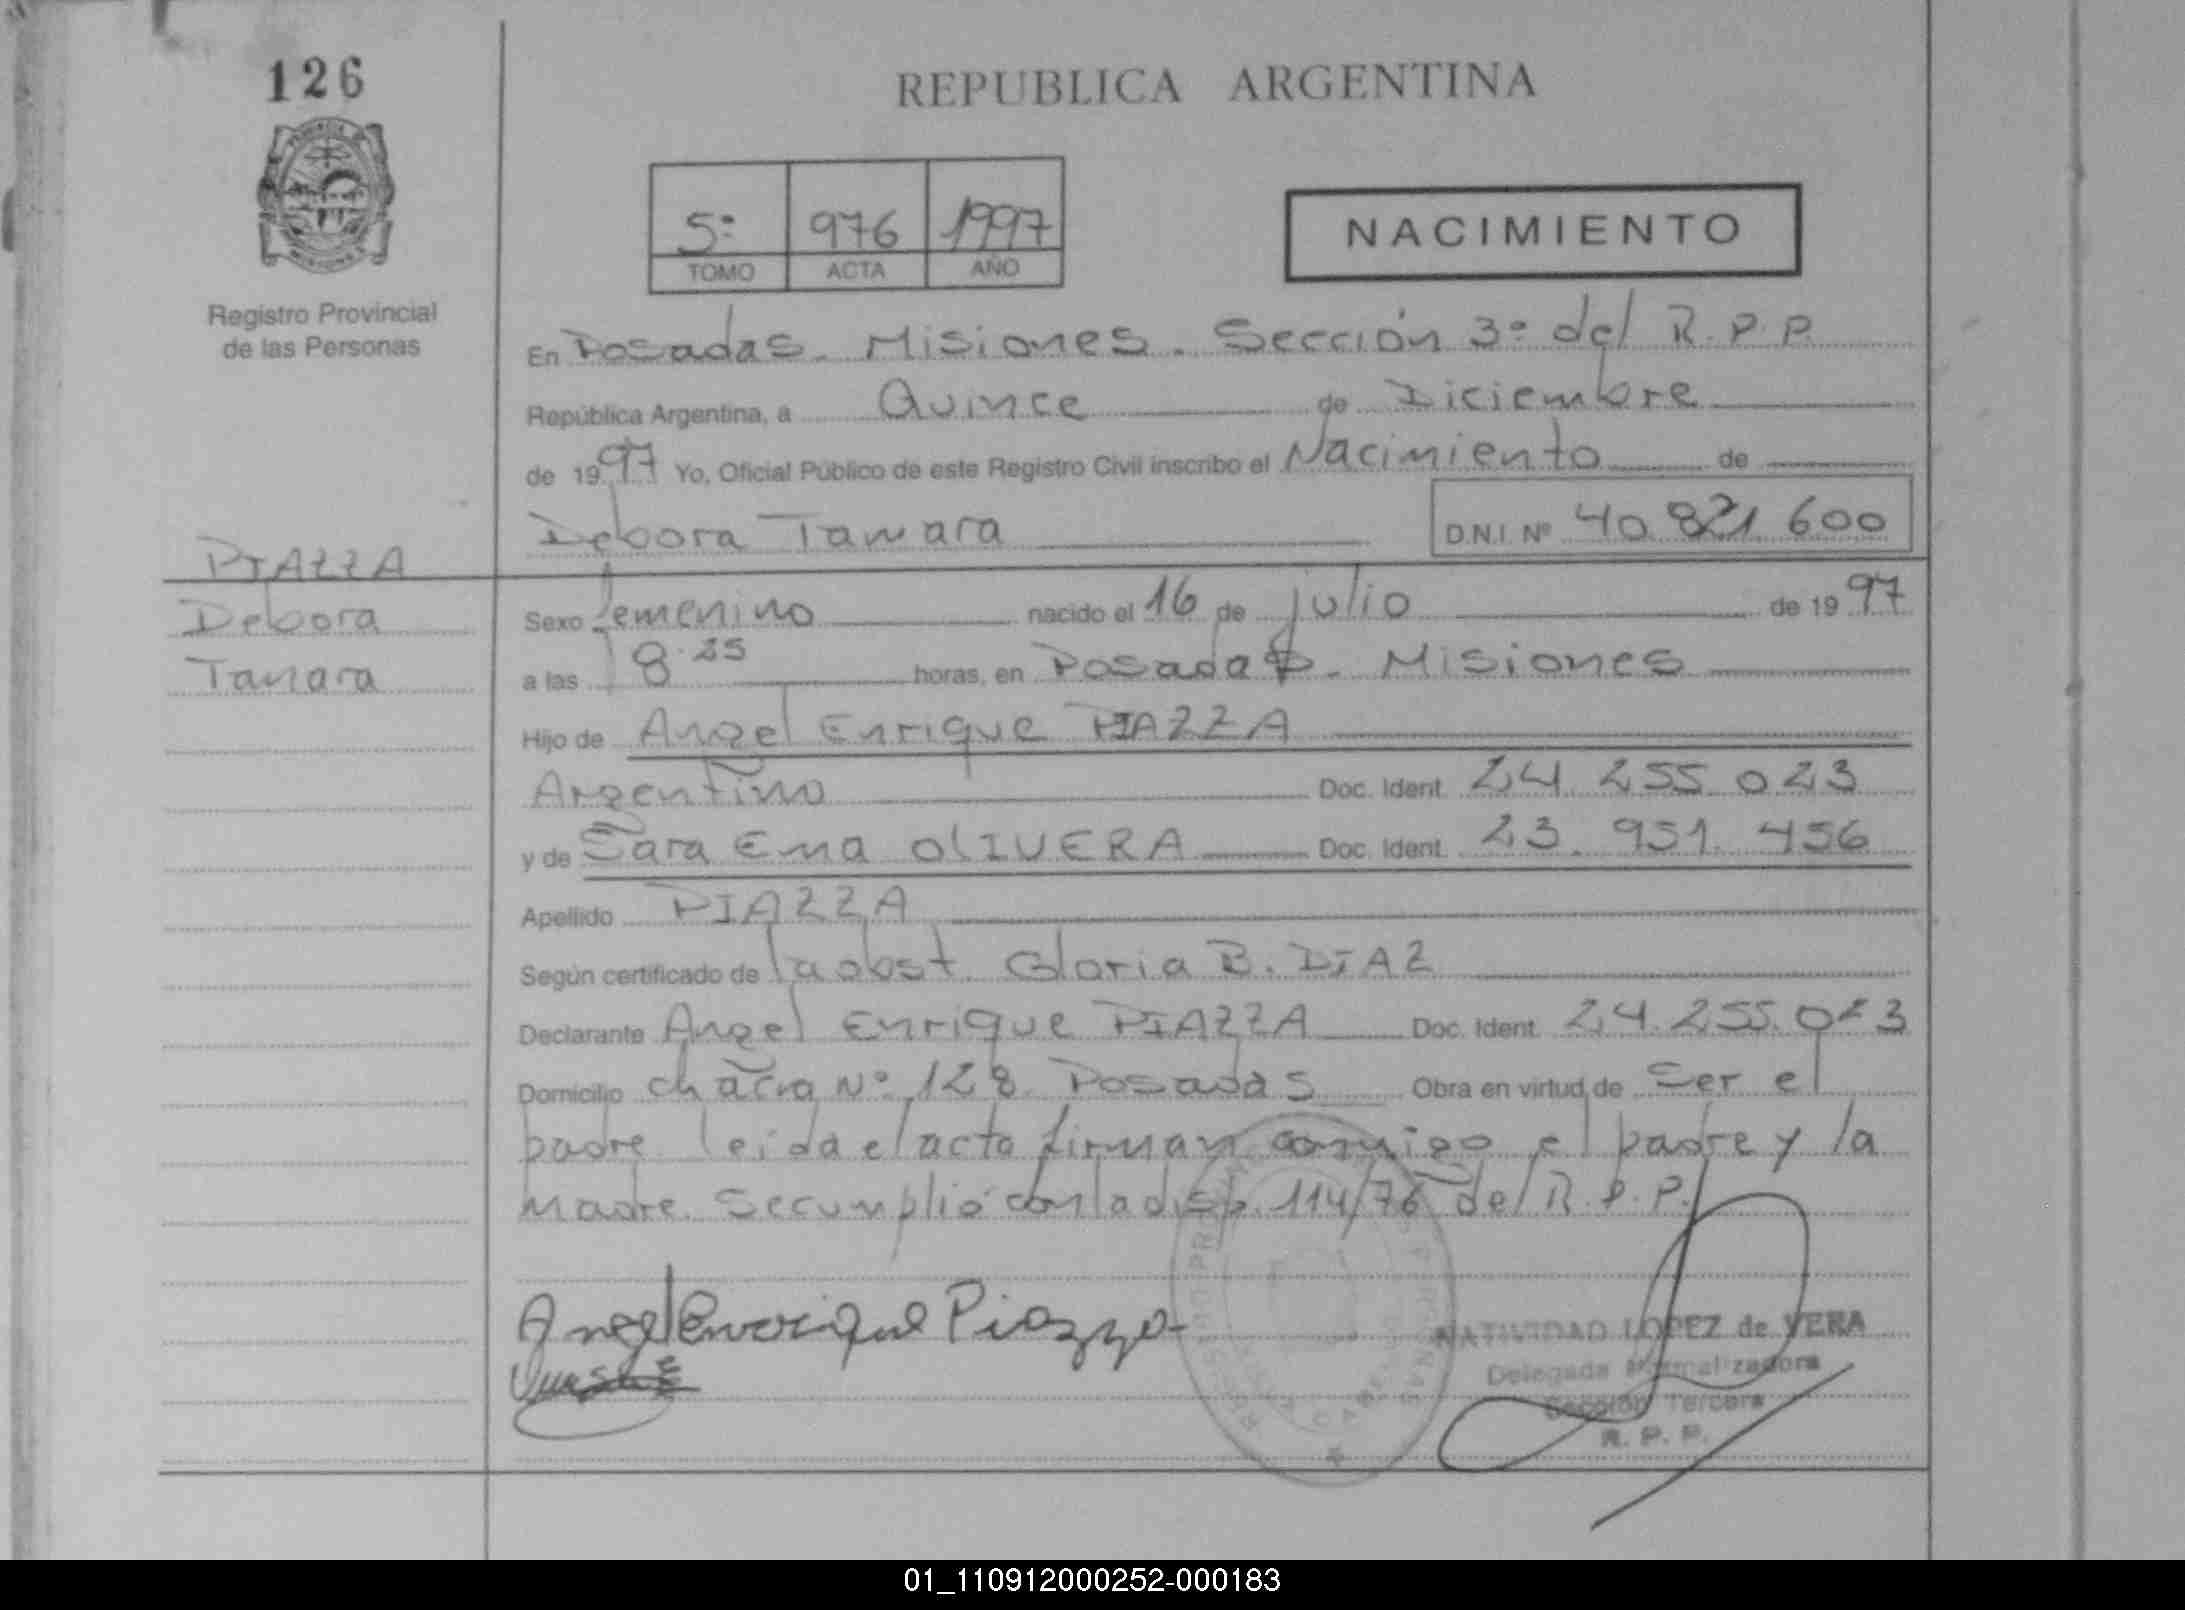 126
REPUBLICA ARGENTINA
5º 976 1997
TOMO ACTA AÑO
NACIMIENTO
Registro Provincial
de las Personas
En Posadas. Misiones. Sección 3º del R.P.P.
República Argentina, a Quince de Diciembre
de 1997 Yo, Oficial Público de este Registro Civil inscribo el Nacimiento de
Debora Tamara D.N.I. Nº 40.821.600
PIAZZA
Debora
Tamara
Sexo femenino nacido el 16 de julio de 1997
a las 8.25 horas, en Posadas. Misiones
Hijo de Angel Enrique PIAZZA
Argentino Doc. Ident. 24.255.023
y de Sara Ema OLIVERA Doc. Ident. 23.951.456
Apellido PIAZZA
Según certificado de la obst. Gloria B. DIAZ
Declarante Angel Enrique PIAZZA Doc. Ident. 24.255.023
Domicilio chacra Nº 128 Posadas Obra en virtud de Ser el
padre. leida el acta firman conmigo el padre y la
Madre. Se cumplió con la disp. 114/76 del R.P.P.
Angel Enrique Piazza
NATIVIDAD LOPEZ de VERA
Delegada Normalizadora
Sección Tercera
R. P. P.
01_110912000252-000183